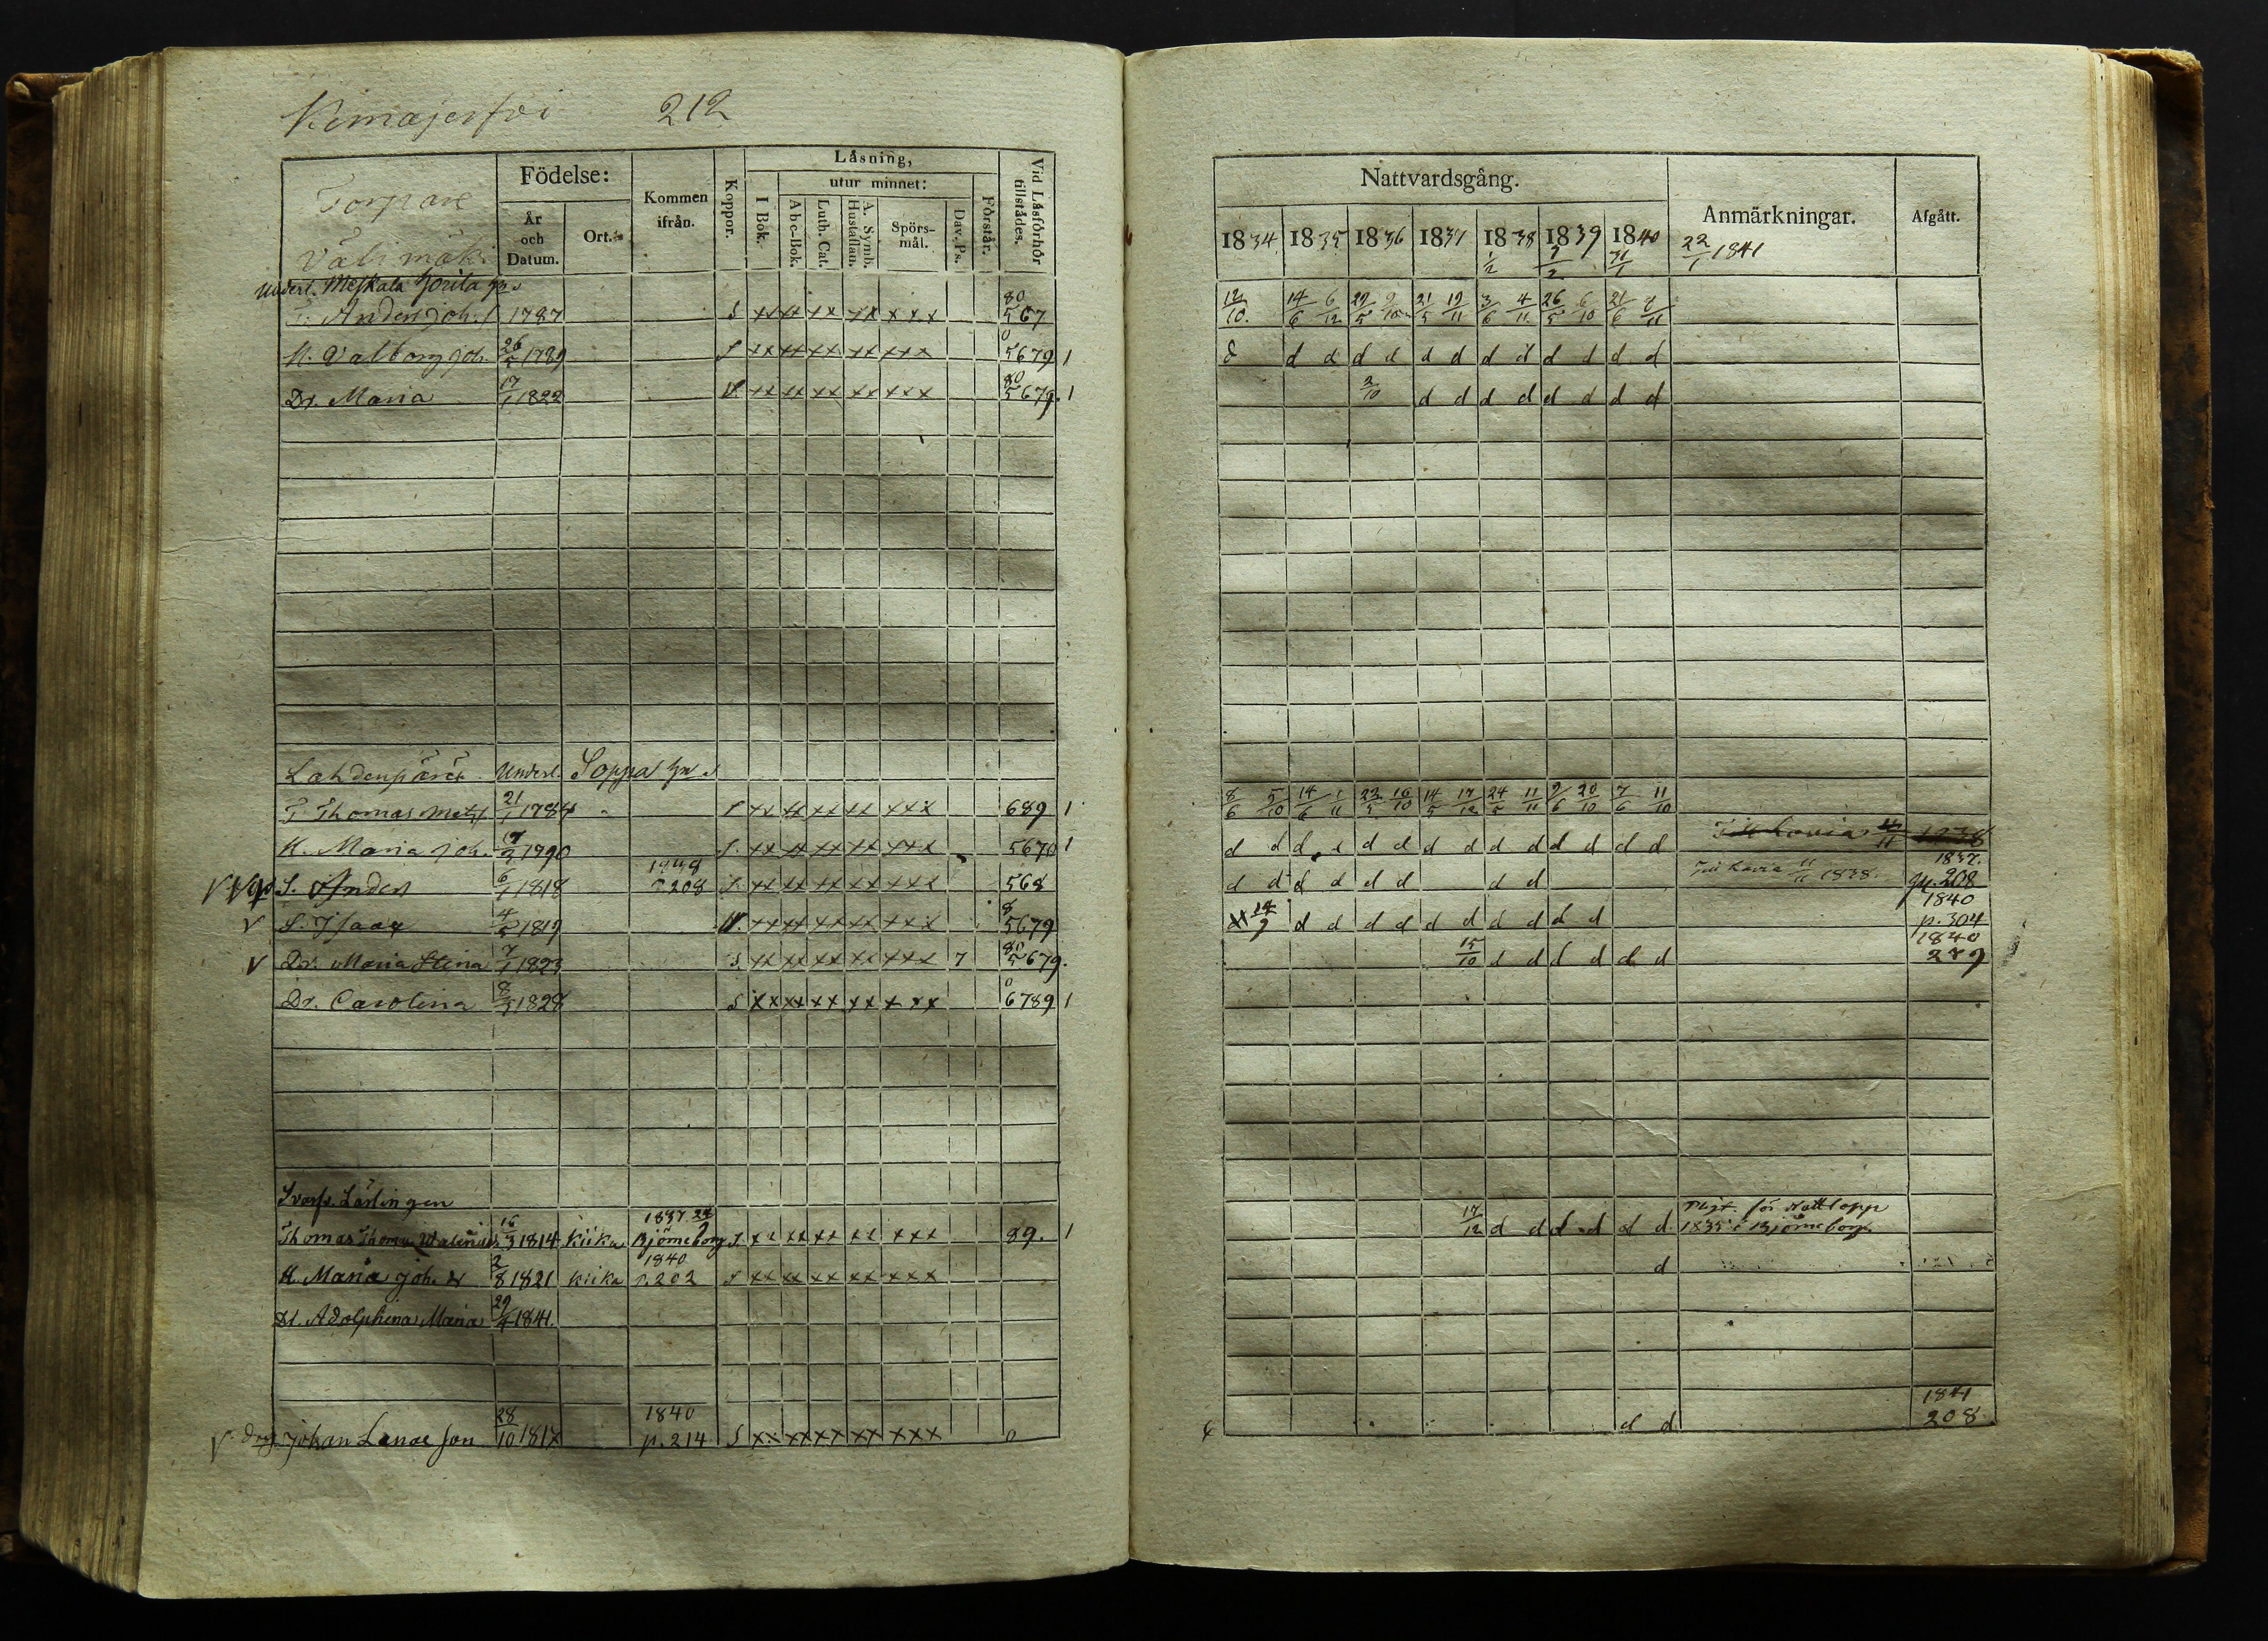 212
Torpare
Välimäki
Födelse:
År och Datum.
Ort.
Kommen ifrån.
Koppor.
Låsning,
utur minnet:
I Bok.
Abc-Bok.
Luth. Cat.
A. Symb. Hustaflan.
Spörs-mål.
Dav. Ps.
Förstår.
Vid Låsförhör tillstådes.
Nattvardsgång.
Anmärkningar.
Afgått.
1834 1835 1836 1837 1838 1839 1840
1/2 22/1 1841
Underl.
T. Anders Joh. 1787 S xx xx xx xx xxx 80 567
12/10. 14/6 6/12 21/5 19/11 3/6 4/11 26/5 6/10 21/6 8/11
H. Valborg Joh. 26/5 1789 S xx xx xx xx xxx 0 5679 1
d d d d d d d d d d d d d
Dr. Maria 17/1 1822 V. xx xx xx xx xxx 80 5679. 1
2/10 d d d d d d d d
Underl. Soppa
T Thomas Matts. 21/1 1784 S xx xx xx xx xxx 689 1
8/6 5/10 14/6 1/11 22/5 16/10 14/5 17/12 24/5 11/11 9/6 20/10 7/6 11/10
H. Maria Joh. 1790 S. xx xx xx xx xxx 5670 1
d d d d d d d d d d d d d d
S. Anders 6/1 1818 p. 208 S. xx xx xx xx xxx 568
d d d d d d d d Till Lavia 11/11 1838. 1837. 208
v S. Isaac 4/5 1819 V. xx xx xx xx xxx 8 5679
d d d d d d d d d d 1840 p. 304
v Dr. Maria Stina 7/1 1823 S xx xx xx xx xxx 7 80 5679.
15/10 d d d d d d 1840 289
Dr. Carolina 8/3 1828 S xx xx xx xx xxx 0 6789 1
Thomas Thoms. 16/3 1814 Kiika 1837 Björneborg S. xx xx xx xx xxx 89. 1
17/12 d d d d d d 1835 i Björneborg.
H. Maria Joh. dr 2/8 1821 Kiika 1840 p. 202 S xx xx xx xx xxx
d
Dr. Adolphina Maria 29/4 1841.
v Johan 28/10 1817 1840 p. 214 S xx xx xx xx xxx 0
d d 1841 208